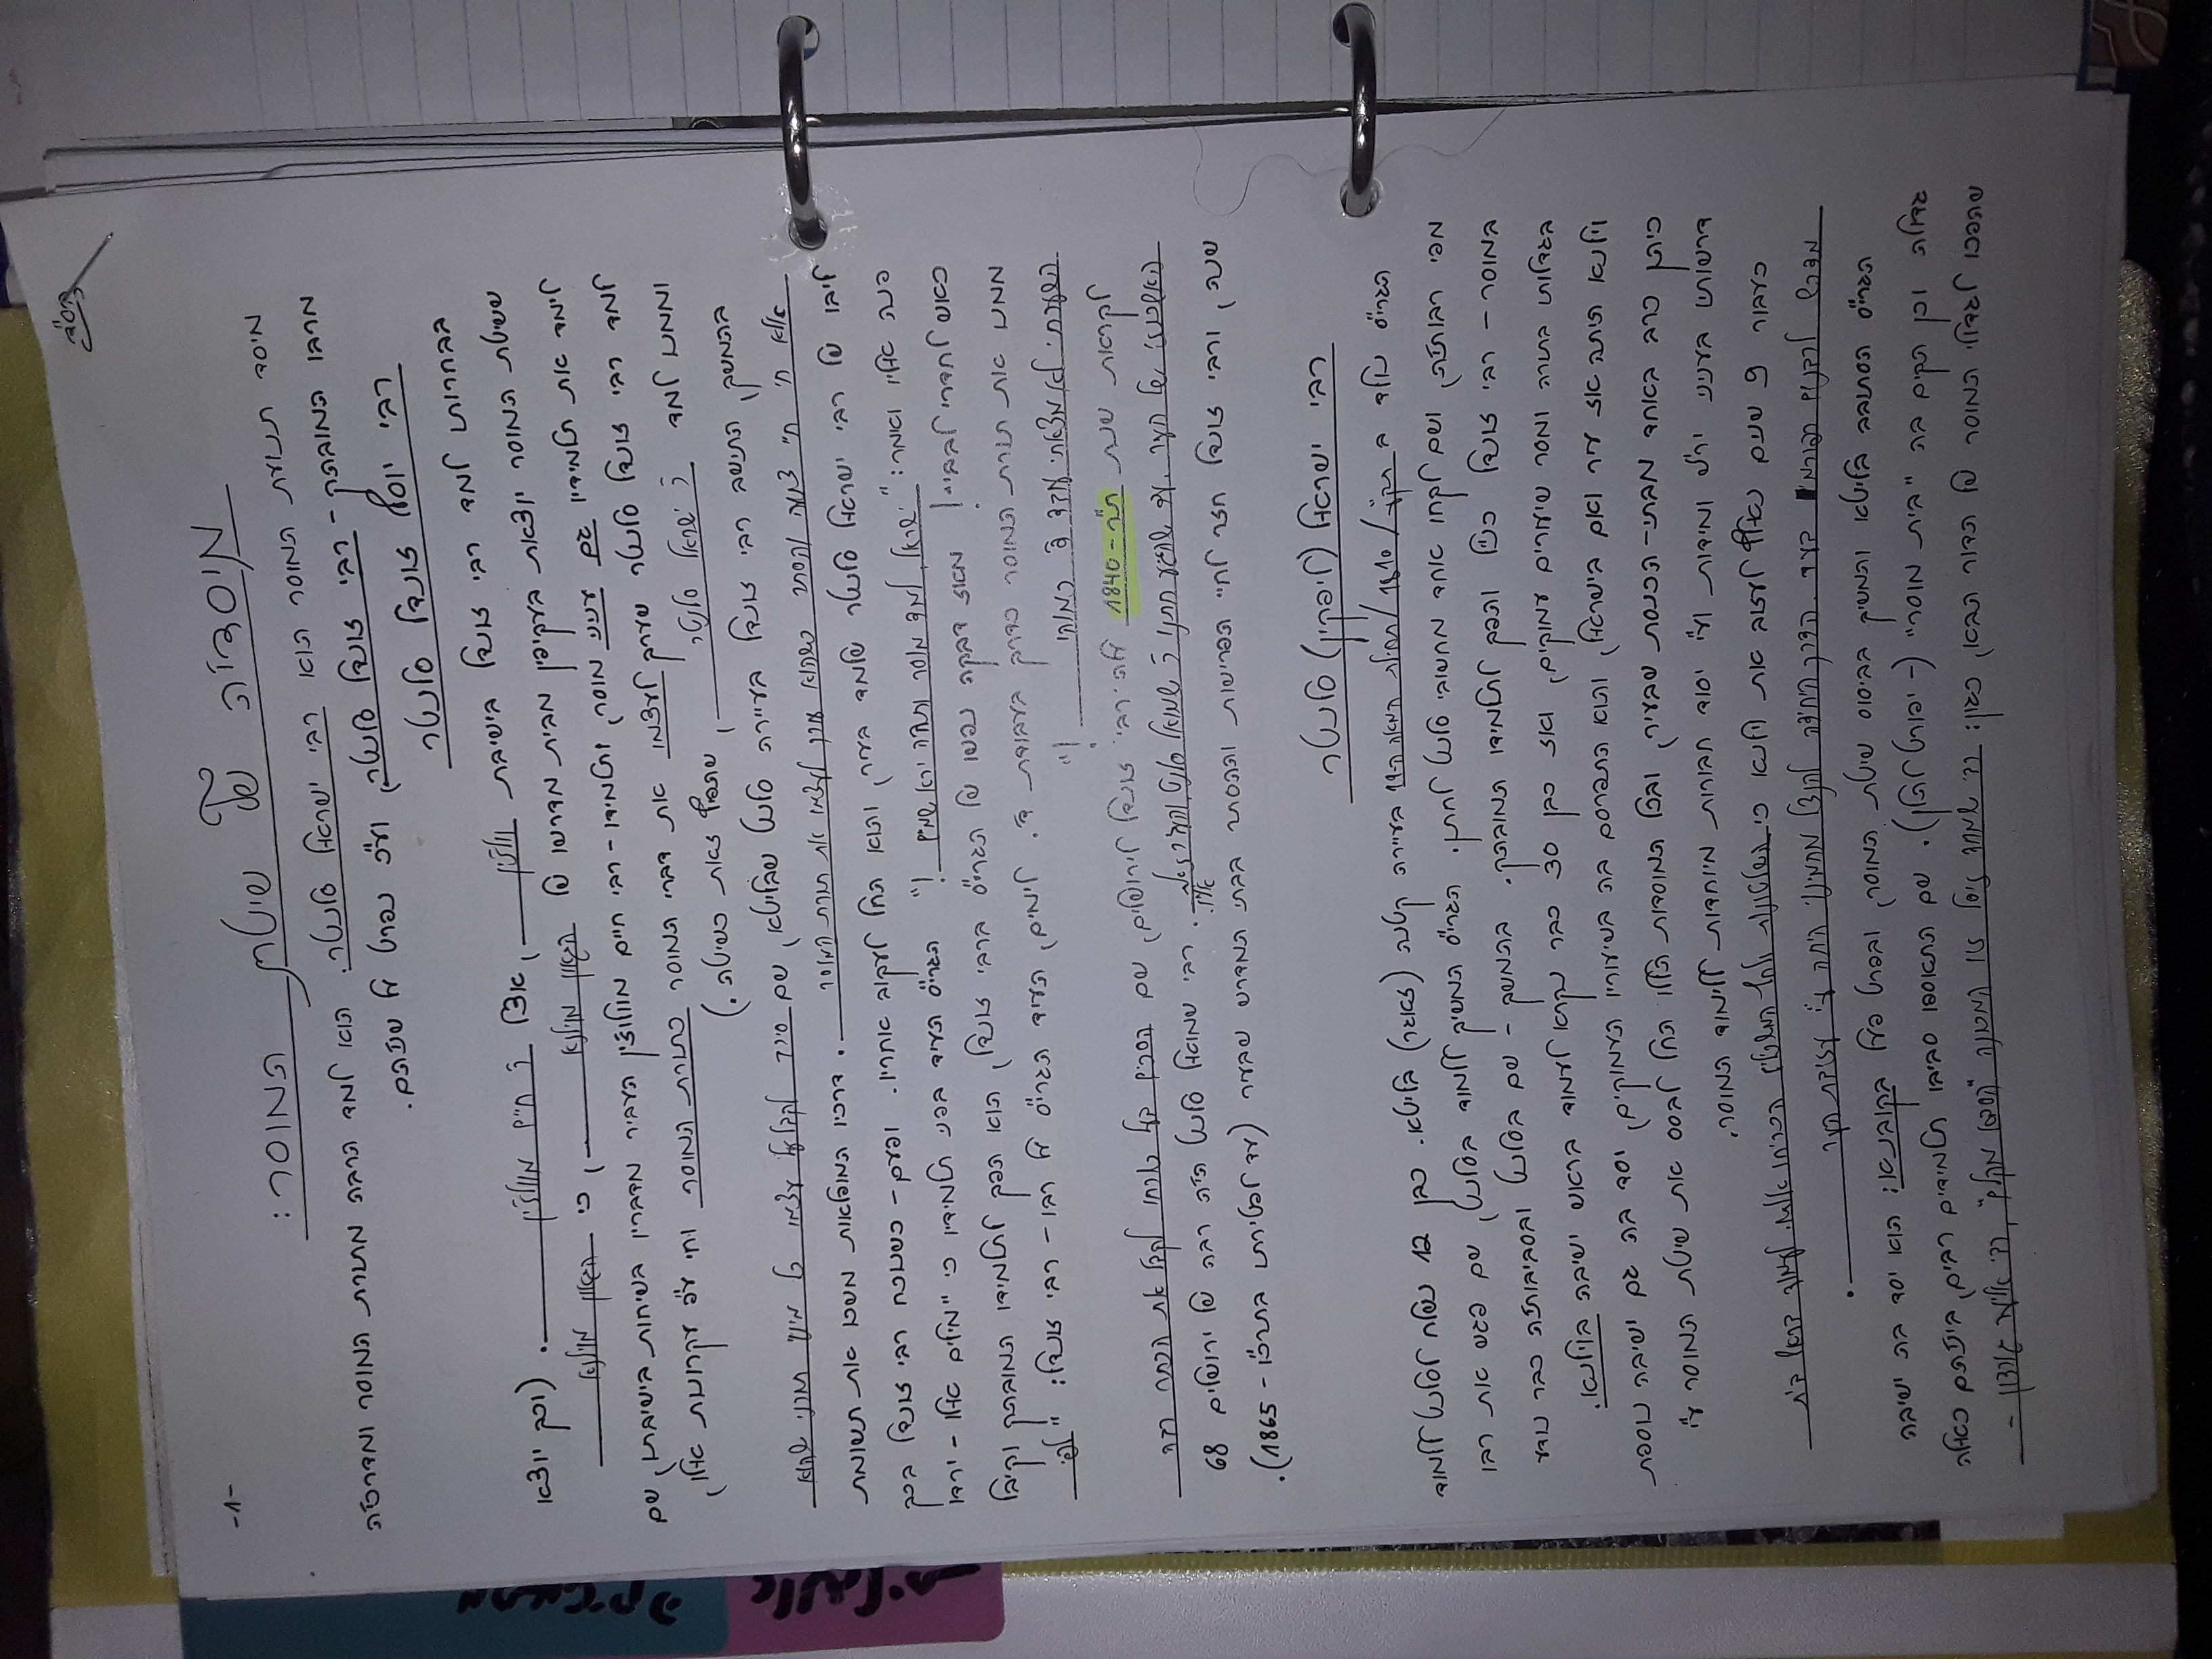 בס"ד
-1-
מיסדיה של שיטת המוסר:
מיסד תנועת המוסר הוא רבי ישראל סלנטר. הוא למד הרבה מתורת המוסר ומדרכיה
מרבו המובהק - רבי זונדל סלנטר, וע"כ נפרט על שניהם.
רבי יוסף זונדל סלנטר
בבחרותו למד רבי זונדל בישיבת וולוז'ין, אצל ר' חיים מוולוז'ין. (וכך יוצא
ששיטת המוסר יוצאת בעקיפין מבית מדרשו של הגאון מוילנא, כי הגאון מוילנא
לימד את תלמידיו גם עניני מוסר, ותלמידו - רבי חיים מוולוז'ין העביר מדבריו בשיחות בישיבתו, שם
למד רבי זונדל סלנטר שערך לעצמו את דברי המוסר כתורת המוסר וחי ע"פ עקרונות אלו,
וממנו למד ר' ישראל סלנטר, שהפיץ זאת כשיטה.)
בהמשך, התישב רבי זונדל בעיירה סלנט שבליטא, שם סירב לקבל על עצמו כל מינוי תורני שהוא
אלא חי חיי צנעה והסתר כשהוא עורך לעצמו את תורת המוסר. דרכיו המופלאות משכו את תשומת
ליבו של רבי ישראל סלנטר שלמד בעיר, והוא החל לעקוב אחריו. ופעם - כשנוכח רבי זונדל בכך
פנה אליו ואמר: "ישראל, למד מוסר ותהיה ירא שמים!" הגרי"ס העיד בפני תלמידיו כי "מילים אלו - ירדו
כאש לחדרי לבבי"! מאז דבקה נפשו של הגרי"ס ברבי זונדל, הוא הפך לתלמידו המובהק וקיבל
ממנו את תורת המוסר כדרך בעבודת ד'. לימים, העיד הגרי"ס על רבו - רבי זונדל: "לפי
השערתי לא מצאתי עובד ה' כמוהו!"
לקראת שנת ת"ר - 1840 עלה רבי זונדל לירושלים, שם הסכים בעל כורחו לקבל את הכתר רבה
האשכנזי של העיר, עד שהגיע חתנו ר' שמואל סלנט, והעביר זאת
אליו. רבי שמואל סלנט היה רבה של ירושלים 68
שנה, ורבי זונדל חזר לחיי הפרישות וההסתר בבתי המדרש שבעיר (עד לפטירתו בתרכ"ו - 1865).
רבי ישראל (ליפקין) סלנטר
הגרי"ס נולד ב תק"ע / 1810 / תחילת המאה ה-19 בעיירה קטנה (זאגר) בליטא. כבן 12 נשלח לסלנט ללמוד
מפי רבותיה, ושם לקחו אחד מחשובי סלנט לחתן. הגרי"ס המשיך ללמוד בסלנט, שם פגש את רבו
במוסר - רבי זונדל כנ"ל והפך לתלמידו המובהק. בהמשך - שם בסלנט ובסביבותיה כבר נודע
בגדלותו בתורה ומסר שיעורים עמוקים, ואז כבן 30 כבר נקרא לעמוד בראש ישיבה בוילנא.
וילנא היתה אז עיר ואם בישראל, והוא התפרסם בה בשיעוריו העמוקים, יסד בה גם ישיבה נוספת
כיהן כרב באחד מבתי-הכנסת שבעיר, ובכל המוסדות הללו החל לבסס את שיטת המוסר ע"י
דרשותיו בעניני יר"ש ומידות וע"י יסוד חבורות מיוחדות ללימוד המוסר.
כעבור 9 שנים נאלץ לעזוב את וילנא כי השלטונות ולחץ המשכילים הכריחו אותו לעמוד בראש בית
מדרש לרבנים רפורמי בעיר. הדרך היחידה להנצל מהמינוי היתה ע"י עזיבת העיר.
הגרי"ס הסתובב בליטא והמשיך בביסוס שיטת המוסר, ובפרט פעל בקובנא: הוא יסד בה ישיבה
גדולה וכן הקים בה "בית מוסר" (- יפורט להלן). שם התאספו סביבו תלמידים רבים, ביניהם כאלה
שהפכו לגדולי המוסר של הדור הבא, כגון: רבי שמחה זיסל זיו המכונה "הסבא מקלם", רבי אליעזר גורדון -